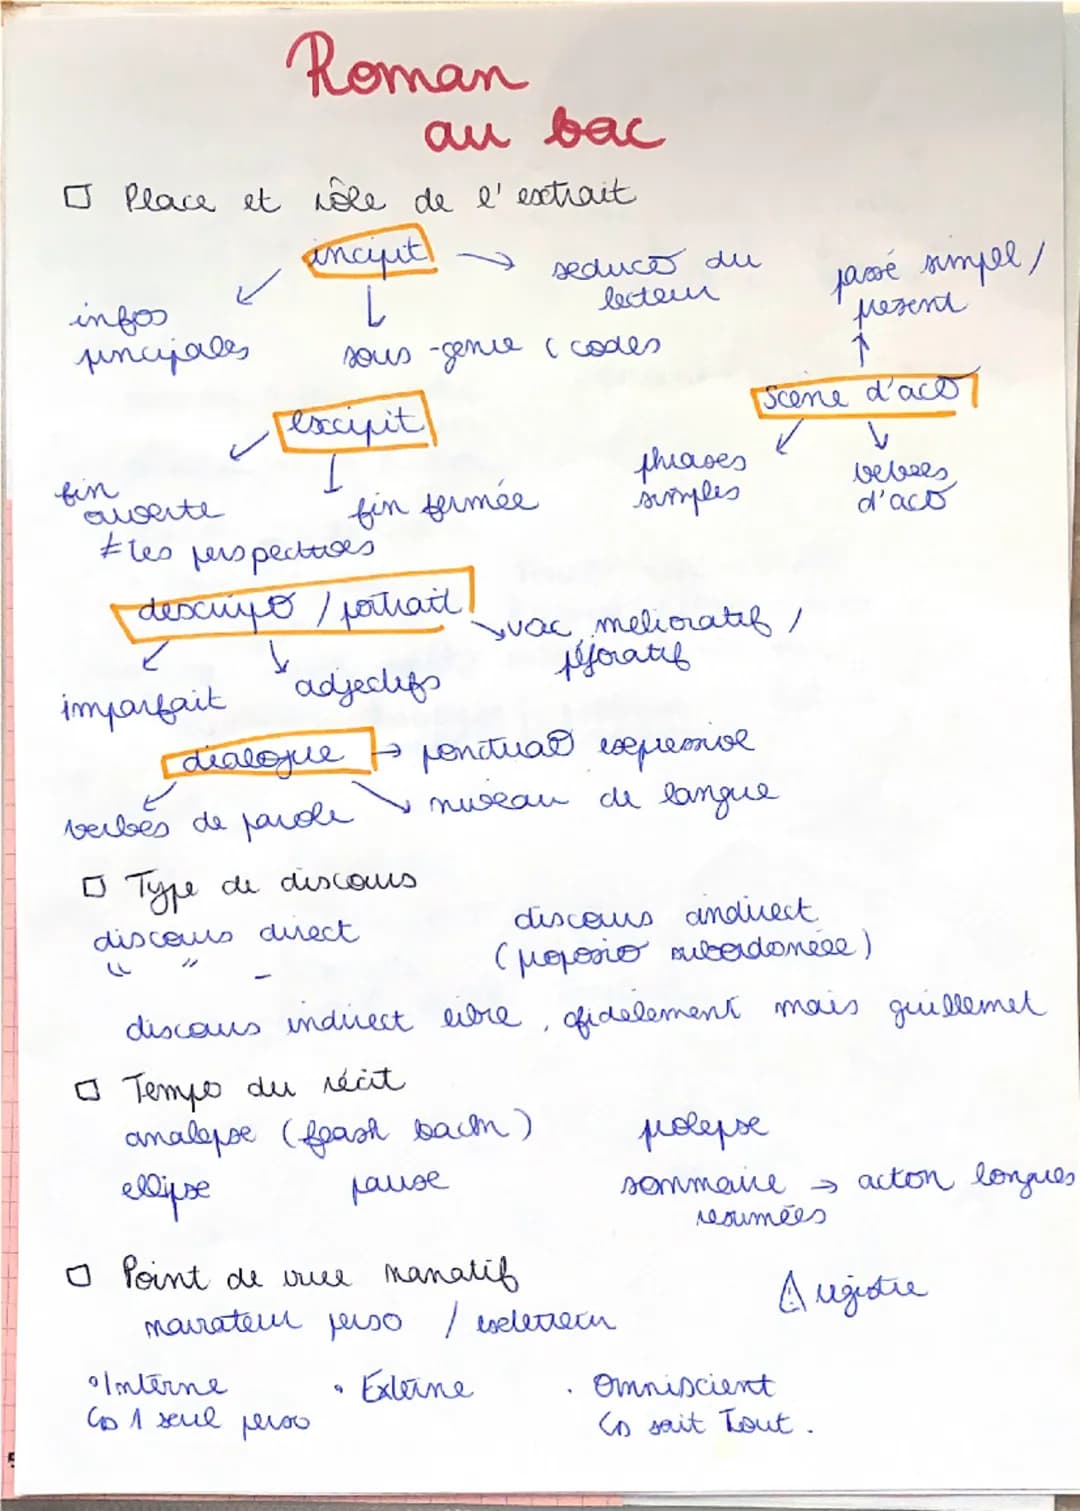 Roman
au bac
Place et rôle de l'extrait
incipit
seducø du
lecteur
infos
principales
sous-genre ( codes
passé simpel /
present
scène d'acø
phrases
simples
verbes
d'acø
excipit
fin
ouverte
≠ les perspectives
fin fermée
descripø / portrait
vac mélioratif /
péjoratif
imparfait
adjectifs
dialogue
ponctuaø expressive
niveau de langue
verbes de parole
Type de discous
discous direct
" " -
discous indirect
(proposiø subordonéee)
discous indirect libre, fidèlement mais guillemet
Temps du récit
analepse (flash back)
prolepse
ellipse
pause
sommaire → acton longues
resumées
Point de vue narratif
narrateur perso / exterieur
⚠ registre
Interne
↪ 1 seul perso
Externe
Omniscient
↪ sait Tout.